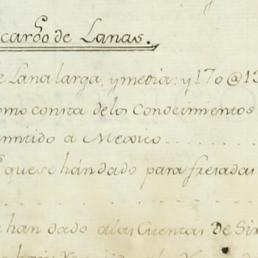 cargo de Lanas.
e Lana larga, y media: y 170 @ 13
omo consta delos Conocimentos
mitido a Mexico
que se hán dado para fresadas
han dado alas Cuentas de Sir